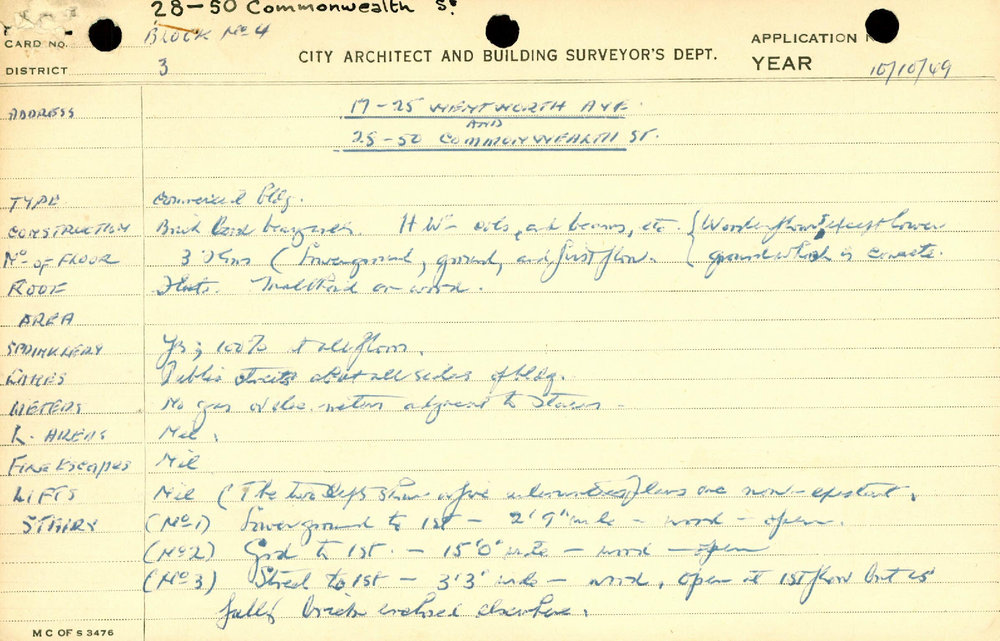 28-50 Commonwealth St
CARD NO. BLOCK No 4
CITY ARCHITECT AND BUILDING SURVEYOR'S DEPT.
APPLICATION N
DISTRICT 3
YEAR 10/10/49
ADDRESS 17-25 WENTWORTH AVE.
AND
28-50 COMMONWEALTH ST.
TYPE Commercial bldg.
CONSTRUCTION Brick load bearing H.W. cols, and beams, etc. { Wooden floors except lower
No OF FLOOR 3 floors (Lowerground, ground, and first floor. { ground which is concrete.
ROOF Flat. Malthoid on wood.
AREA
SPRINKLERS Yes; 100% at all floors.
LANES Public streets about all sides of bldg.
METERS No gas or elec. meters adjacent to stairs.
L. AREAS Nil.
FIRE ESCAPES Nil
LIFTS Nil (The two lifts shown are non-existent.
STAIRS (No 1) Lowerground to 1st - 2'9" wide - wood - open.
(No 2) Grd to 1st. - 15'0" wide - wood - open
(No 3) Street to 1st - 3'3" wide - wood, open at 1st floor but is
fully brick enclosed elsewhere.
M C OF S 3476